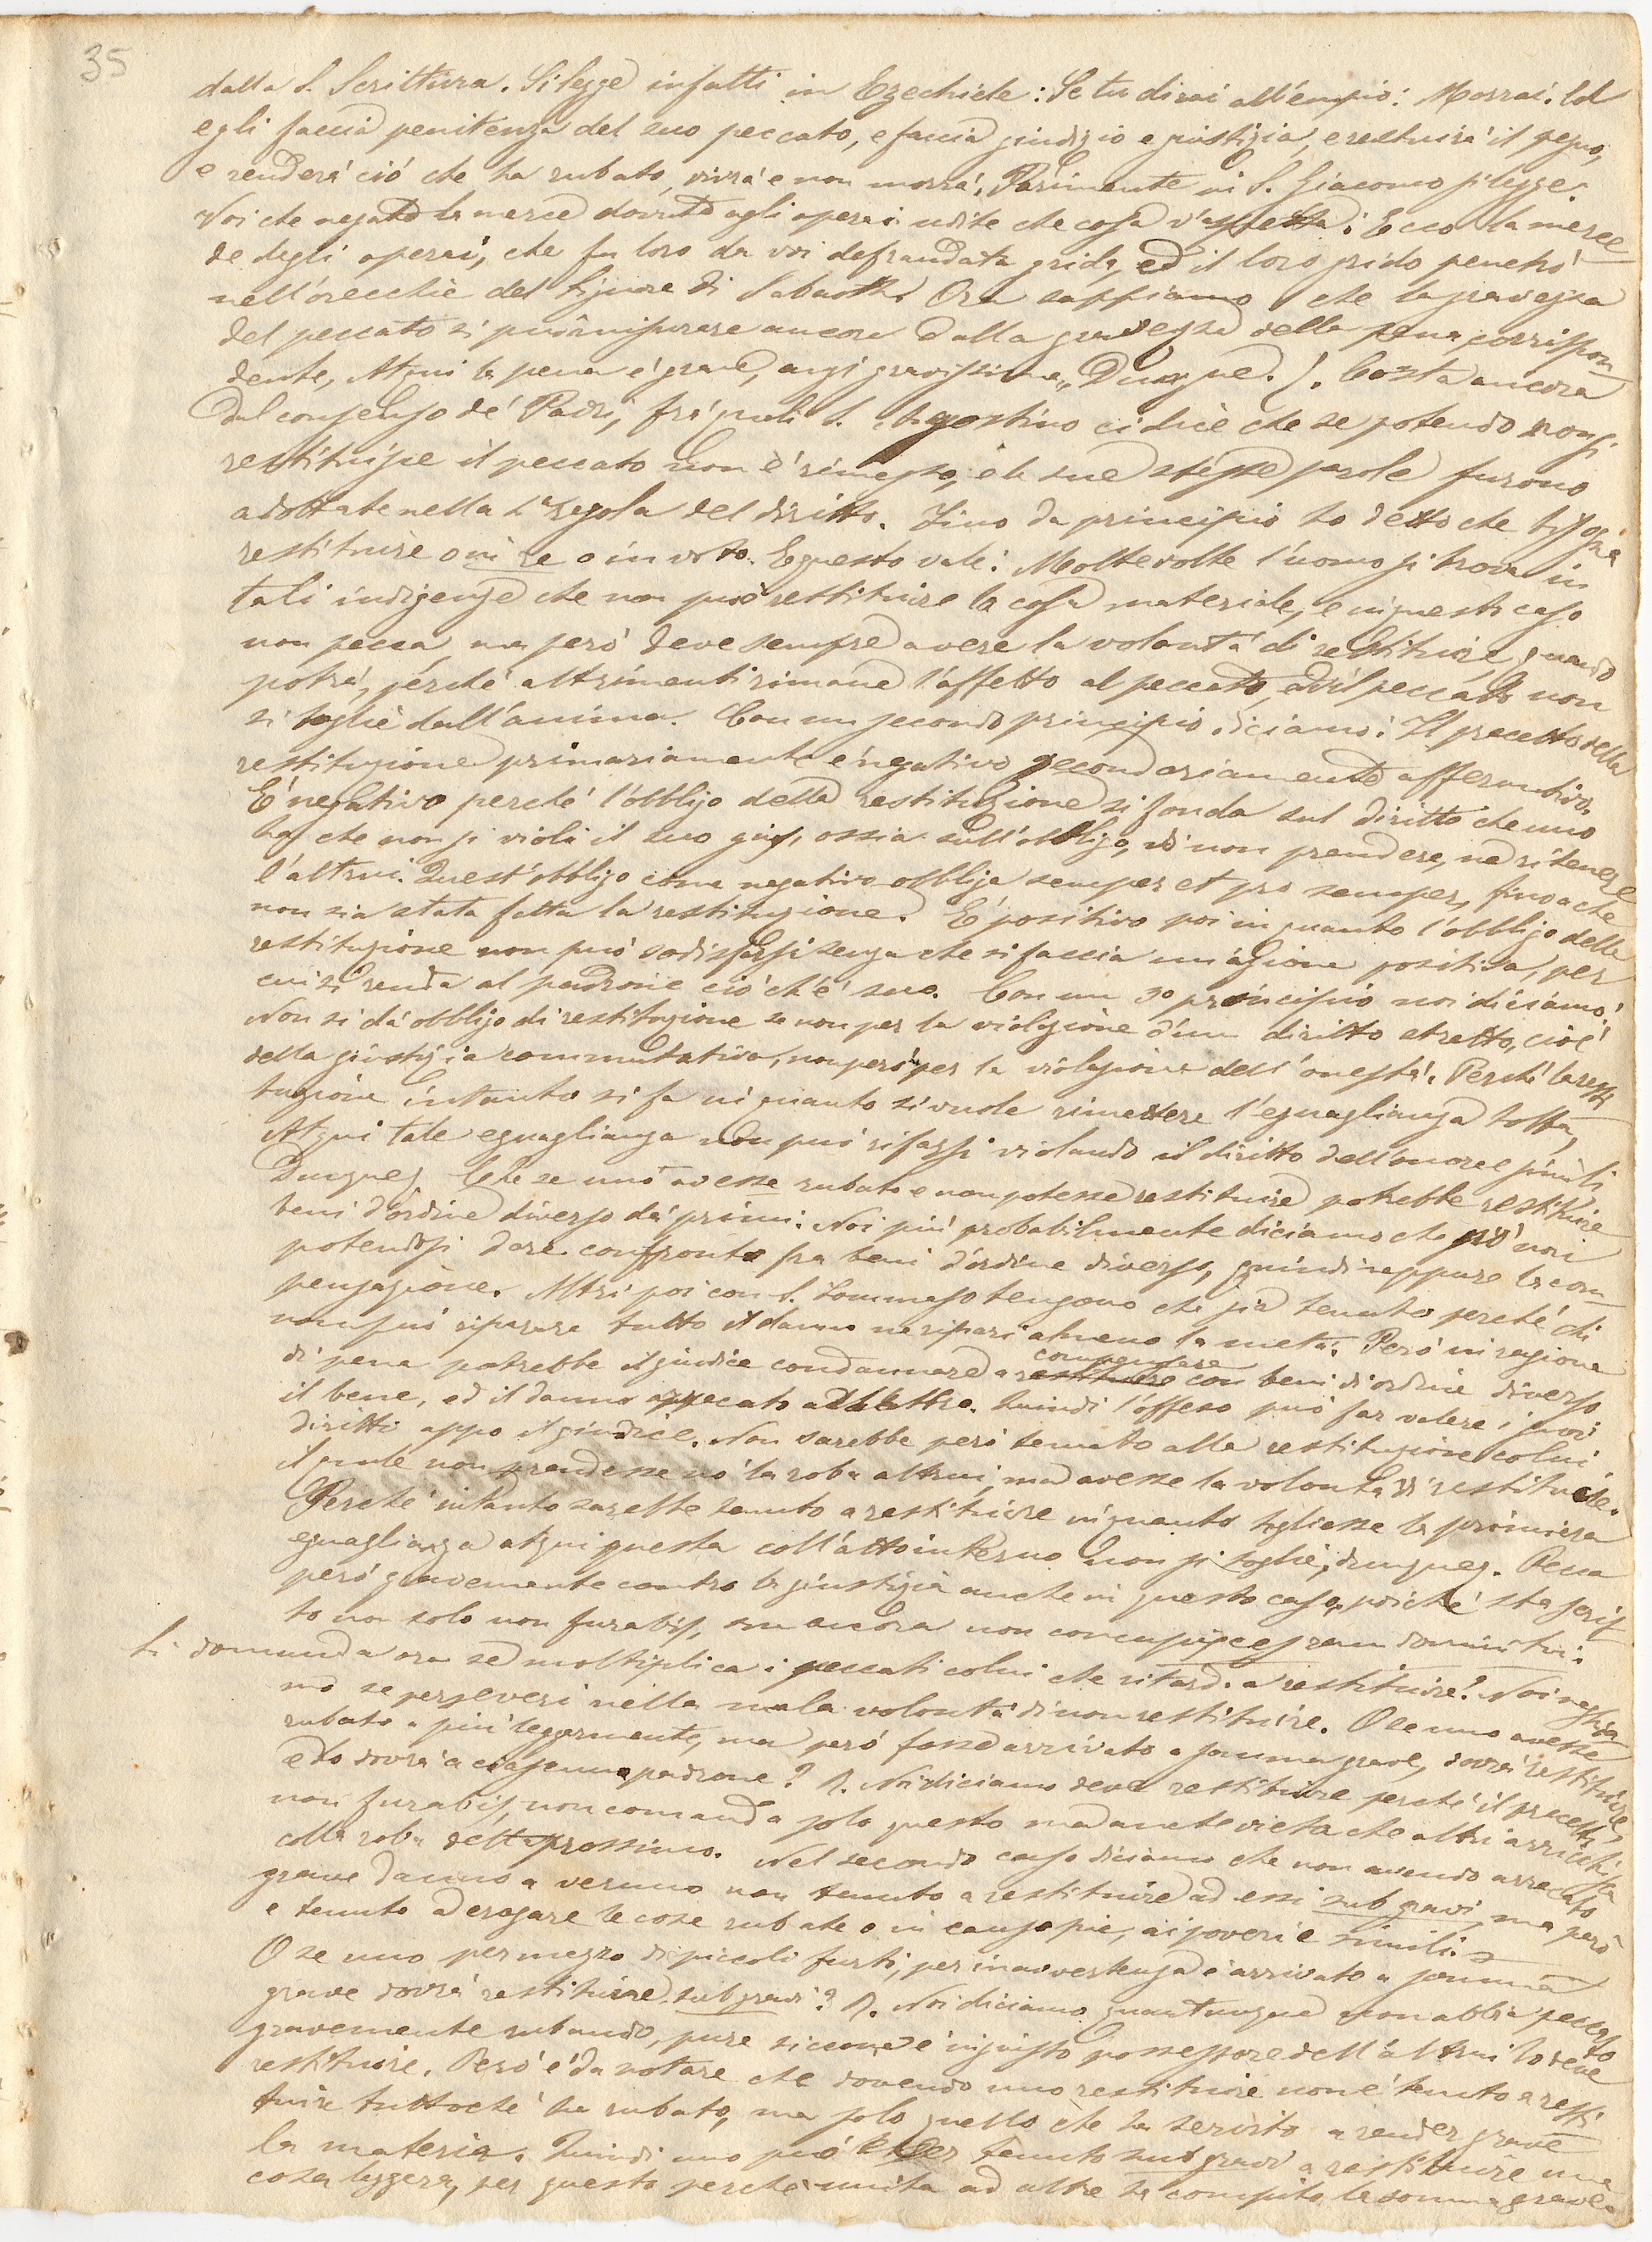 35
dalla S. Scrittura. Si legge infatti in Ezechiele: Se tu dirai all'empio: Morrai. Ed
egli faccia penitenza del suo peccato, e faccia giudizio e giustizia, e restituirá il pegno,
e renderá ció che ha rubato, vivrá e non morrá. Parimente in S. Giacomo si legge:
Voi che negate la merce dovuta agli operai udite che cosa v'aspetta: Ecco la merce
de degli operai, che fu loro da voi defraudata grida, ed il loro grido penetró
nell'orecchie del Signore di Sabaoth. Ora sappiamo che la gravezza
del peccato si può misurare ancora dalla gravezza della pena corrispon
dente, Atqui la pena é grave, anzi gravissima, Dunque. Costa ancora
dal consenso de' Padri, fra' quali S. Agostino ci dice che se potendo non si
restituisce il peccato non é rimesso, e le sue stesse parole furono
adottate nella regola del diritto. Fino da principio ho detto che bisogna
restituire o in re o in voto. E questo vale: Molte volte l'uomo si trova in
tali indigenze che non può restituire la cosa materiale, e in questo caso
non pecca, ma peró deve sempre avere la volontá di restituire, quando
potrá, perché altrimenti rimane l'affetto al peccato, ed il peccato non
si toglie dall'anima. Con un secondo principio diciamo: Il precetto della
restituzione primariamente é negativo secondariamente affermativo.
É negativo perché l'obbligo della restituzione si fonda sul diritto che uno
ha che non si violi il suo gius, ossia sull'obbligo, di non prendere, né ritenere
l'altrui. Quest'obbligo come negativo obbliga semper et pro semper, fino a che
non sia stata fatta la restituzione. É positivo poi in quanto l'obbligo della
restituzione non puó sodisfarsi senza che si faccia un'azione positiva, per
cui si renda al padrone ció ch'é suo. Con un 3º principio noi diciamo:
Non si dá obbligo di restituzione se non per la violazione d'un diritto stretto, cioé
della giustizia commutativa, non peró per la violazione dell'onestá. Perché la resti
tuzione intanto si fa in quanto si vuole rimettere l'eguaglianza tolta,
Atqui tale eguaglianza non puó rifarsi violando il diritto dell'onore e simili
Dunque. Che se uno avesse rubato e non potesse restituire potrebbe restituire
beni d'ordine diverso da' primi: Noi piú probabilmente diciamo che no non
potendosi dare confronto fra beni d'ordine diverso, quindi neppure la com
pensazione. Altri poi con S. Tommaso tengono che sia tenuto perché chi
non puó riparare tutto il danno ne ripari almeno la metá. Peró in ragione
di pena potrebbe il giudice condannare a compensare con beni d'ordine diverso
il bene, ed il danno arrecato all'altro. Quindi l'offeso puó far valere i suoi
diritti appo il giudice. Non sarebbe peró tenuto alla restituzione colui
il quale non prendesse la roba altrui, ma avesse la volontá di
Perché intanto sarebbe tenuto a restituire in quanto togliesse la primiera
eguaglianza atqui questa coll'atto interno non si toglie, dunque. Pecca
peró gravemente contro la giustizia anche in questo caso, poiché sta scrit
to non solo non furabis, ma ancora non concupisces rem domini tui:
Si domanda ora se moltiplica i peccati colui che ritarda a restituire? Noi neghia
mo se perseveri nella mala volontá di non restituire. O se uno avesse
rubato a piú leggermente, ma peró fosse arrivato a somma grave, dovrá restituire,
e lo dovrá a ciascun padrone? R. Noi diciamo deve restituire perché il precetto
non furabis, non comanda solo questo ma anche vieta che altri arricchisca
colla roba del prossimo. Nel secondo caso diciamo che non avendo arrecato
grave danno a veruno non tenuto a restituire ad essi sub gravi, ma però
e tenuto ad erogare le cose rubate o in cause pie, ai poveri e simili.
O se uno per mezzo di piccoli furti, per inavvertenza é arrivato a somma
grave dovrá restituire sub gravi? R. Noi diciamo quantunque non abbia peccato
gravemente rubando, pure siccome é ingiusto possessore dell'altrui lo deve
restituire. Peró é da notare che dovendo uno restituire non é tenuto a resti
tuire tutto ché ha rubato, ma solo quello che ha servito a render grave
la materia. Quindi uno puó esser tenuto sub gravi a restituire una
cosa leggera, per questo perché unita ad altre ha compito la somma grave.